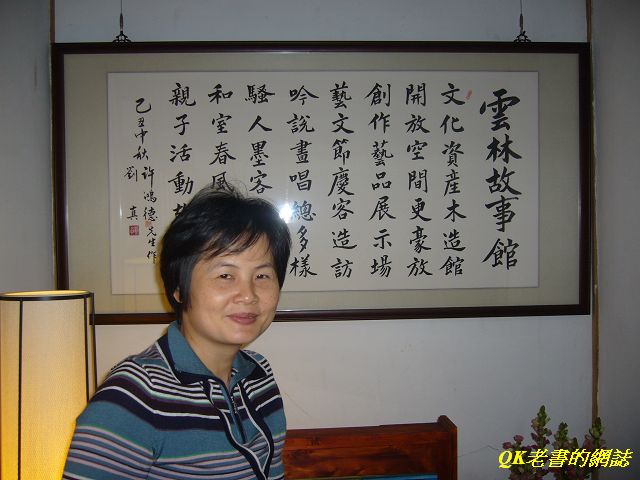 雲林故事館
文化資産木造館
開放空間更豪放
創作藝品展示場
藝文節慶客造訪
吟說畫唱總多樣
騷人墨客
和室春風
親子活動
己丑中秋 許鴻德先生作
劉真
QK老書的網誌